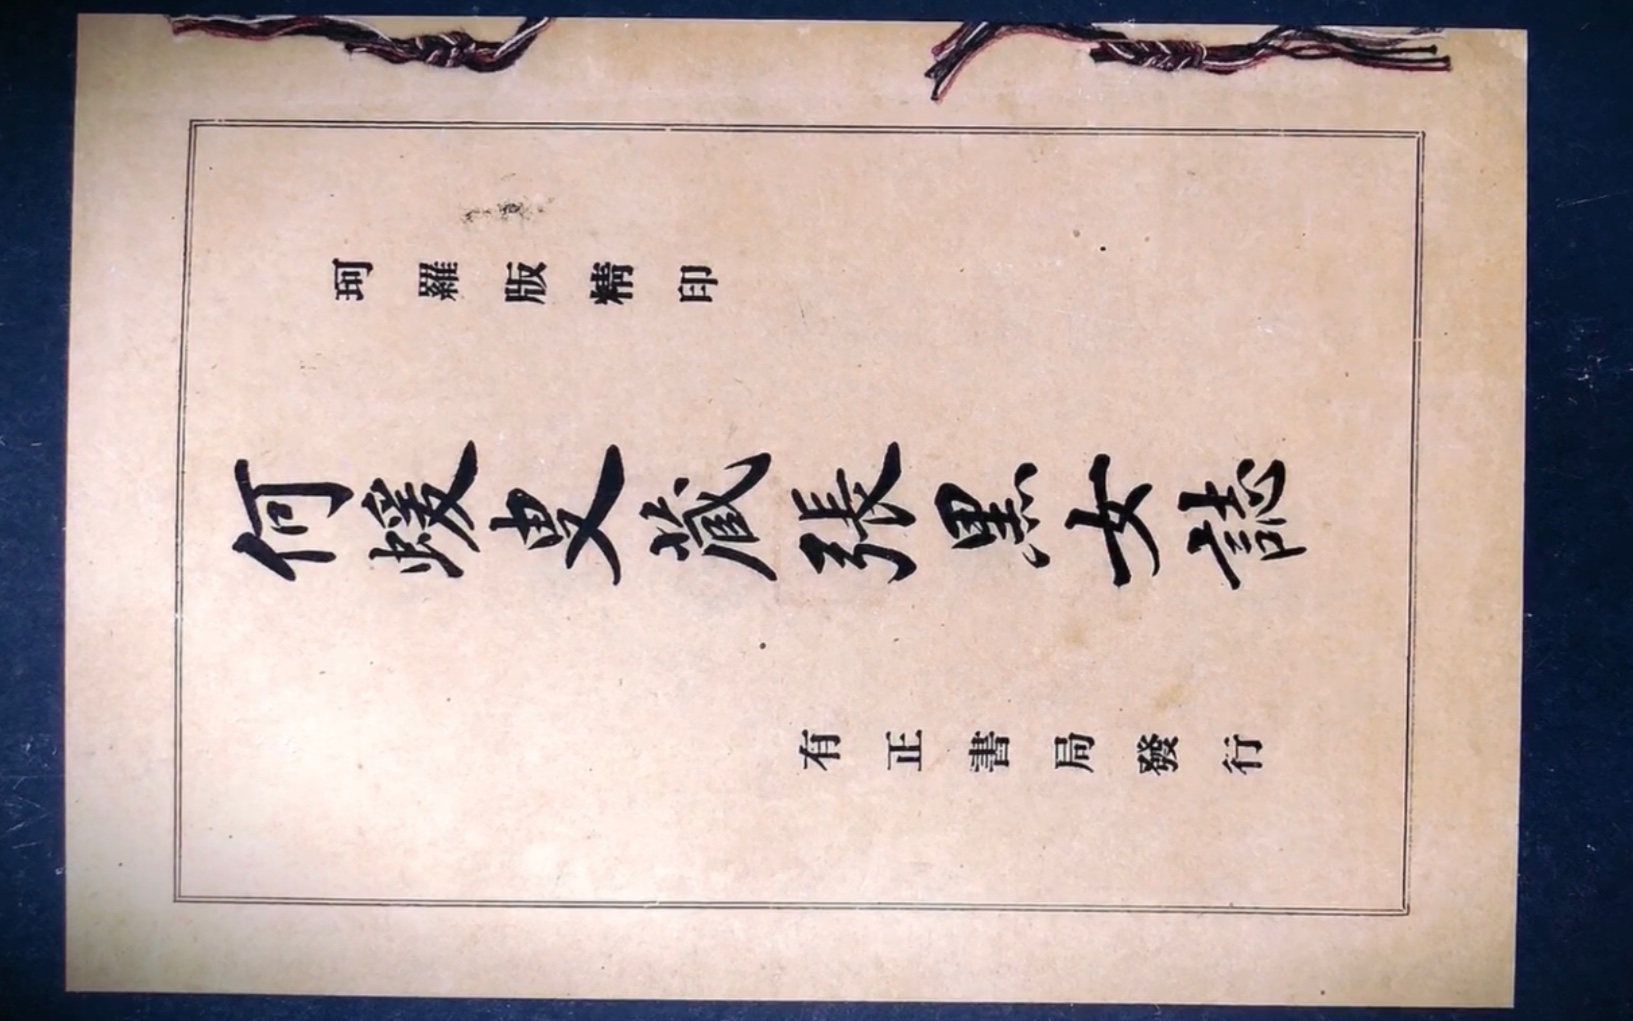 珂羅版精印
何蝯叟藏張黑女誌
有正書局發行